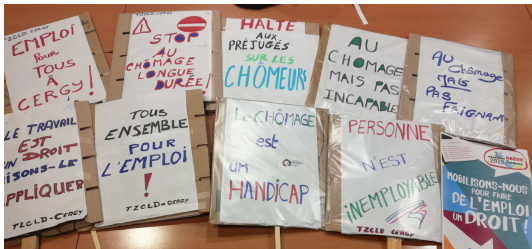 EMPLOI
POUR
TOUS
À
CERGY!
TZCLD-CERGY
STOP
AU
CHÔMAGE
LONGUE
DURÉE!
HALTE
AUX
PRÉJUGÉS
SUR LES
CHÔMEURS
AU
CHOMAGE
MAIS PAS
INCAPABLE
AU
CHÔMAGE
MAIS
PAS
FEIGNANT
LE TRAVAIL
EST
UN DROIT
LE
APPLIQUER
TZCLD-CERGY
TOUS
ENSEMBLE
POUR
L'EMPLOI
!
TZCLD-CERGY
LE CHÔMAGE
est
un
HANDICAP
PERSONNE
N'EST
INEMPLOYABLE
TZCLD CERGY
MOBILISONS-NOUS
POUR FAIRE
DE L'EMPLOI
UN DROIT!